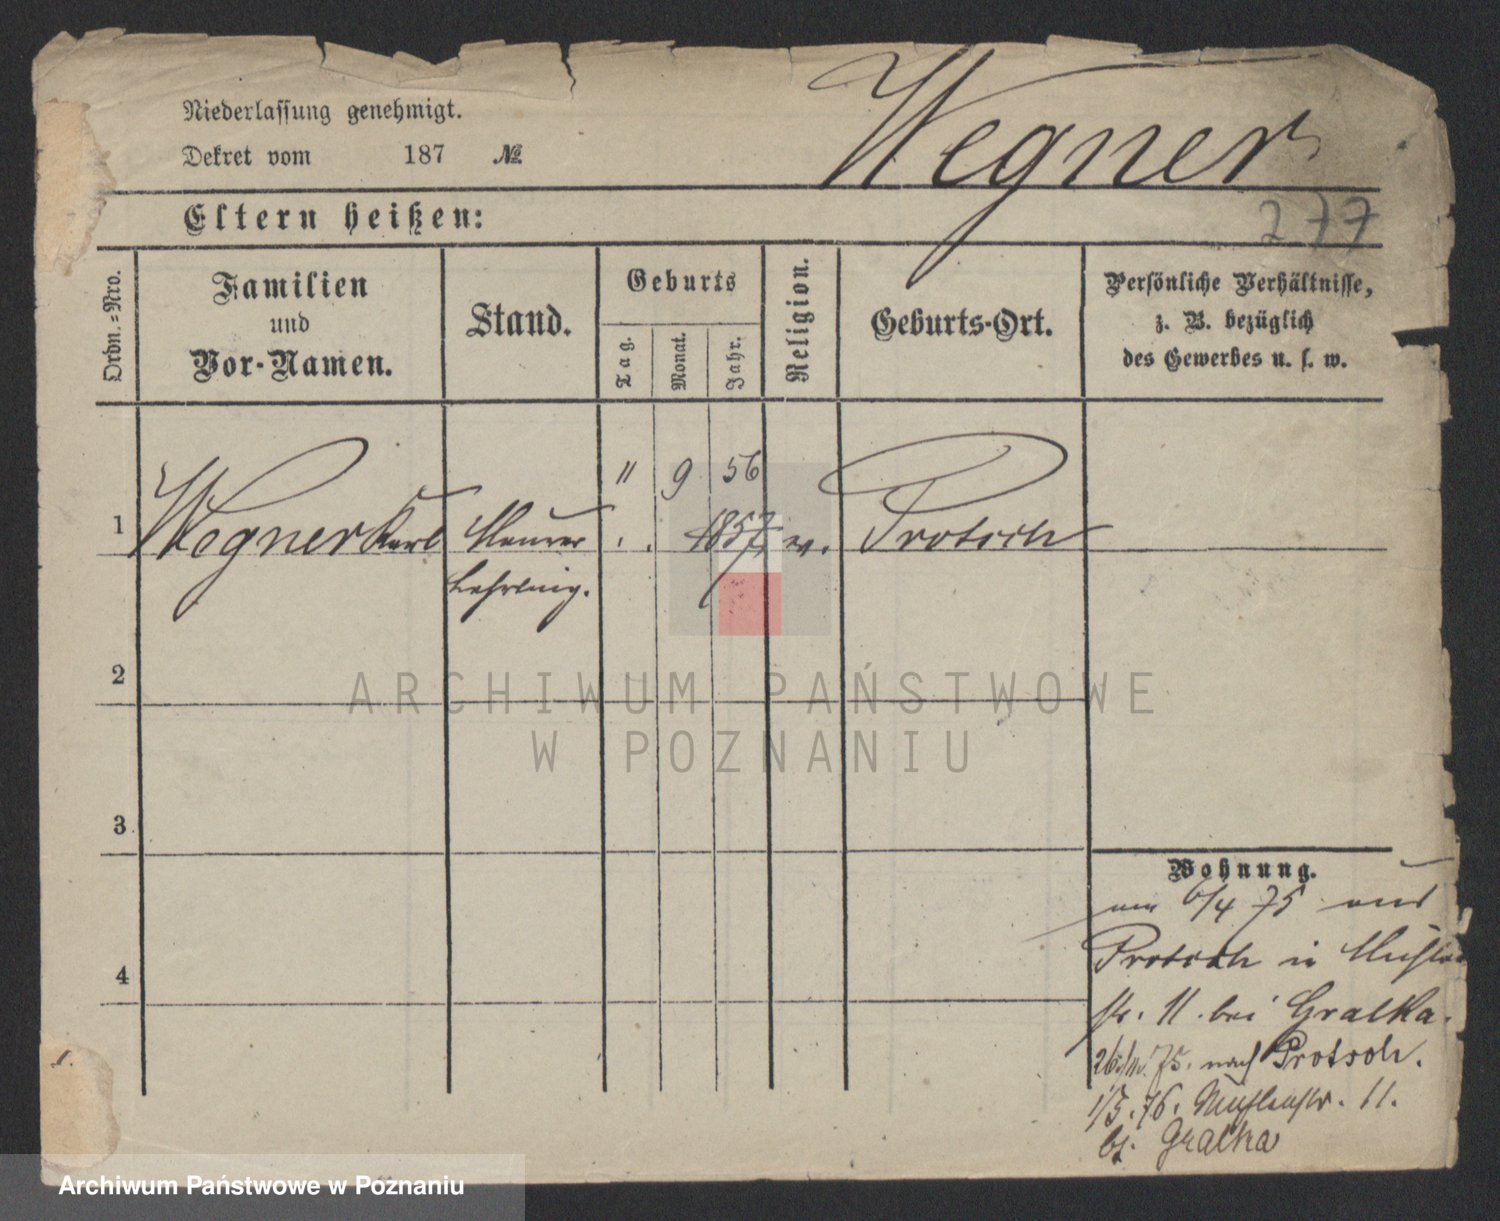 Wegner
Niederlassung genehmigt.
Dekret vom 187 №
Eltern heißen:
277
Ordn.=Nro.
Familien
und
Vor-Namen.
Stand.
Geburts
Tag.
Monat.
Jahr.
Religion.
Geburts-Ort.
Persönliche Verhältnisse,
z. B. bezüglich
des Gewerbes u. s. w.
11 9 56
1 Wegner Karl Maurer 1857 ev. Protsch
Lehrling.
2
ARCHIWUM PAŃSTWOWE
W POZNANIU
3
Wohnung.
6/4 75 aus
Protsch in Mühlen
str. 11 bei Gralka.
4
75. nach Protsch.
1.
76. Mühlenstr. 11.
bj. Gralka
Archiwum Państwowe w Poznaniu